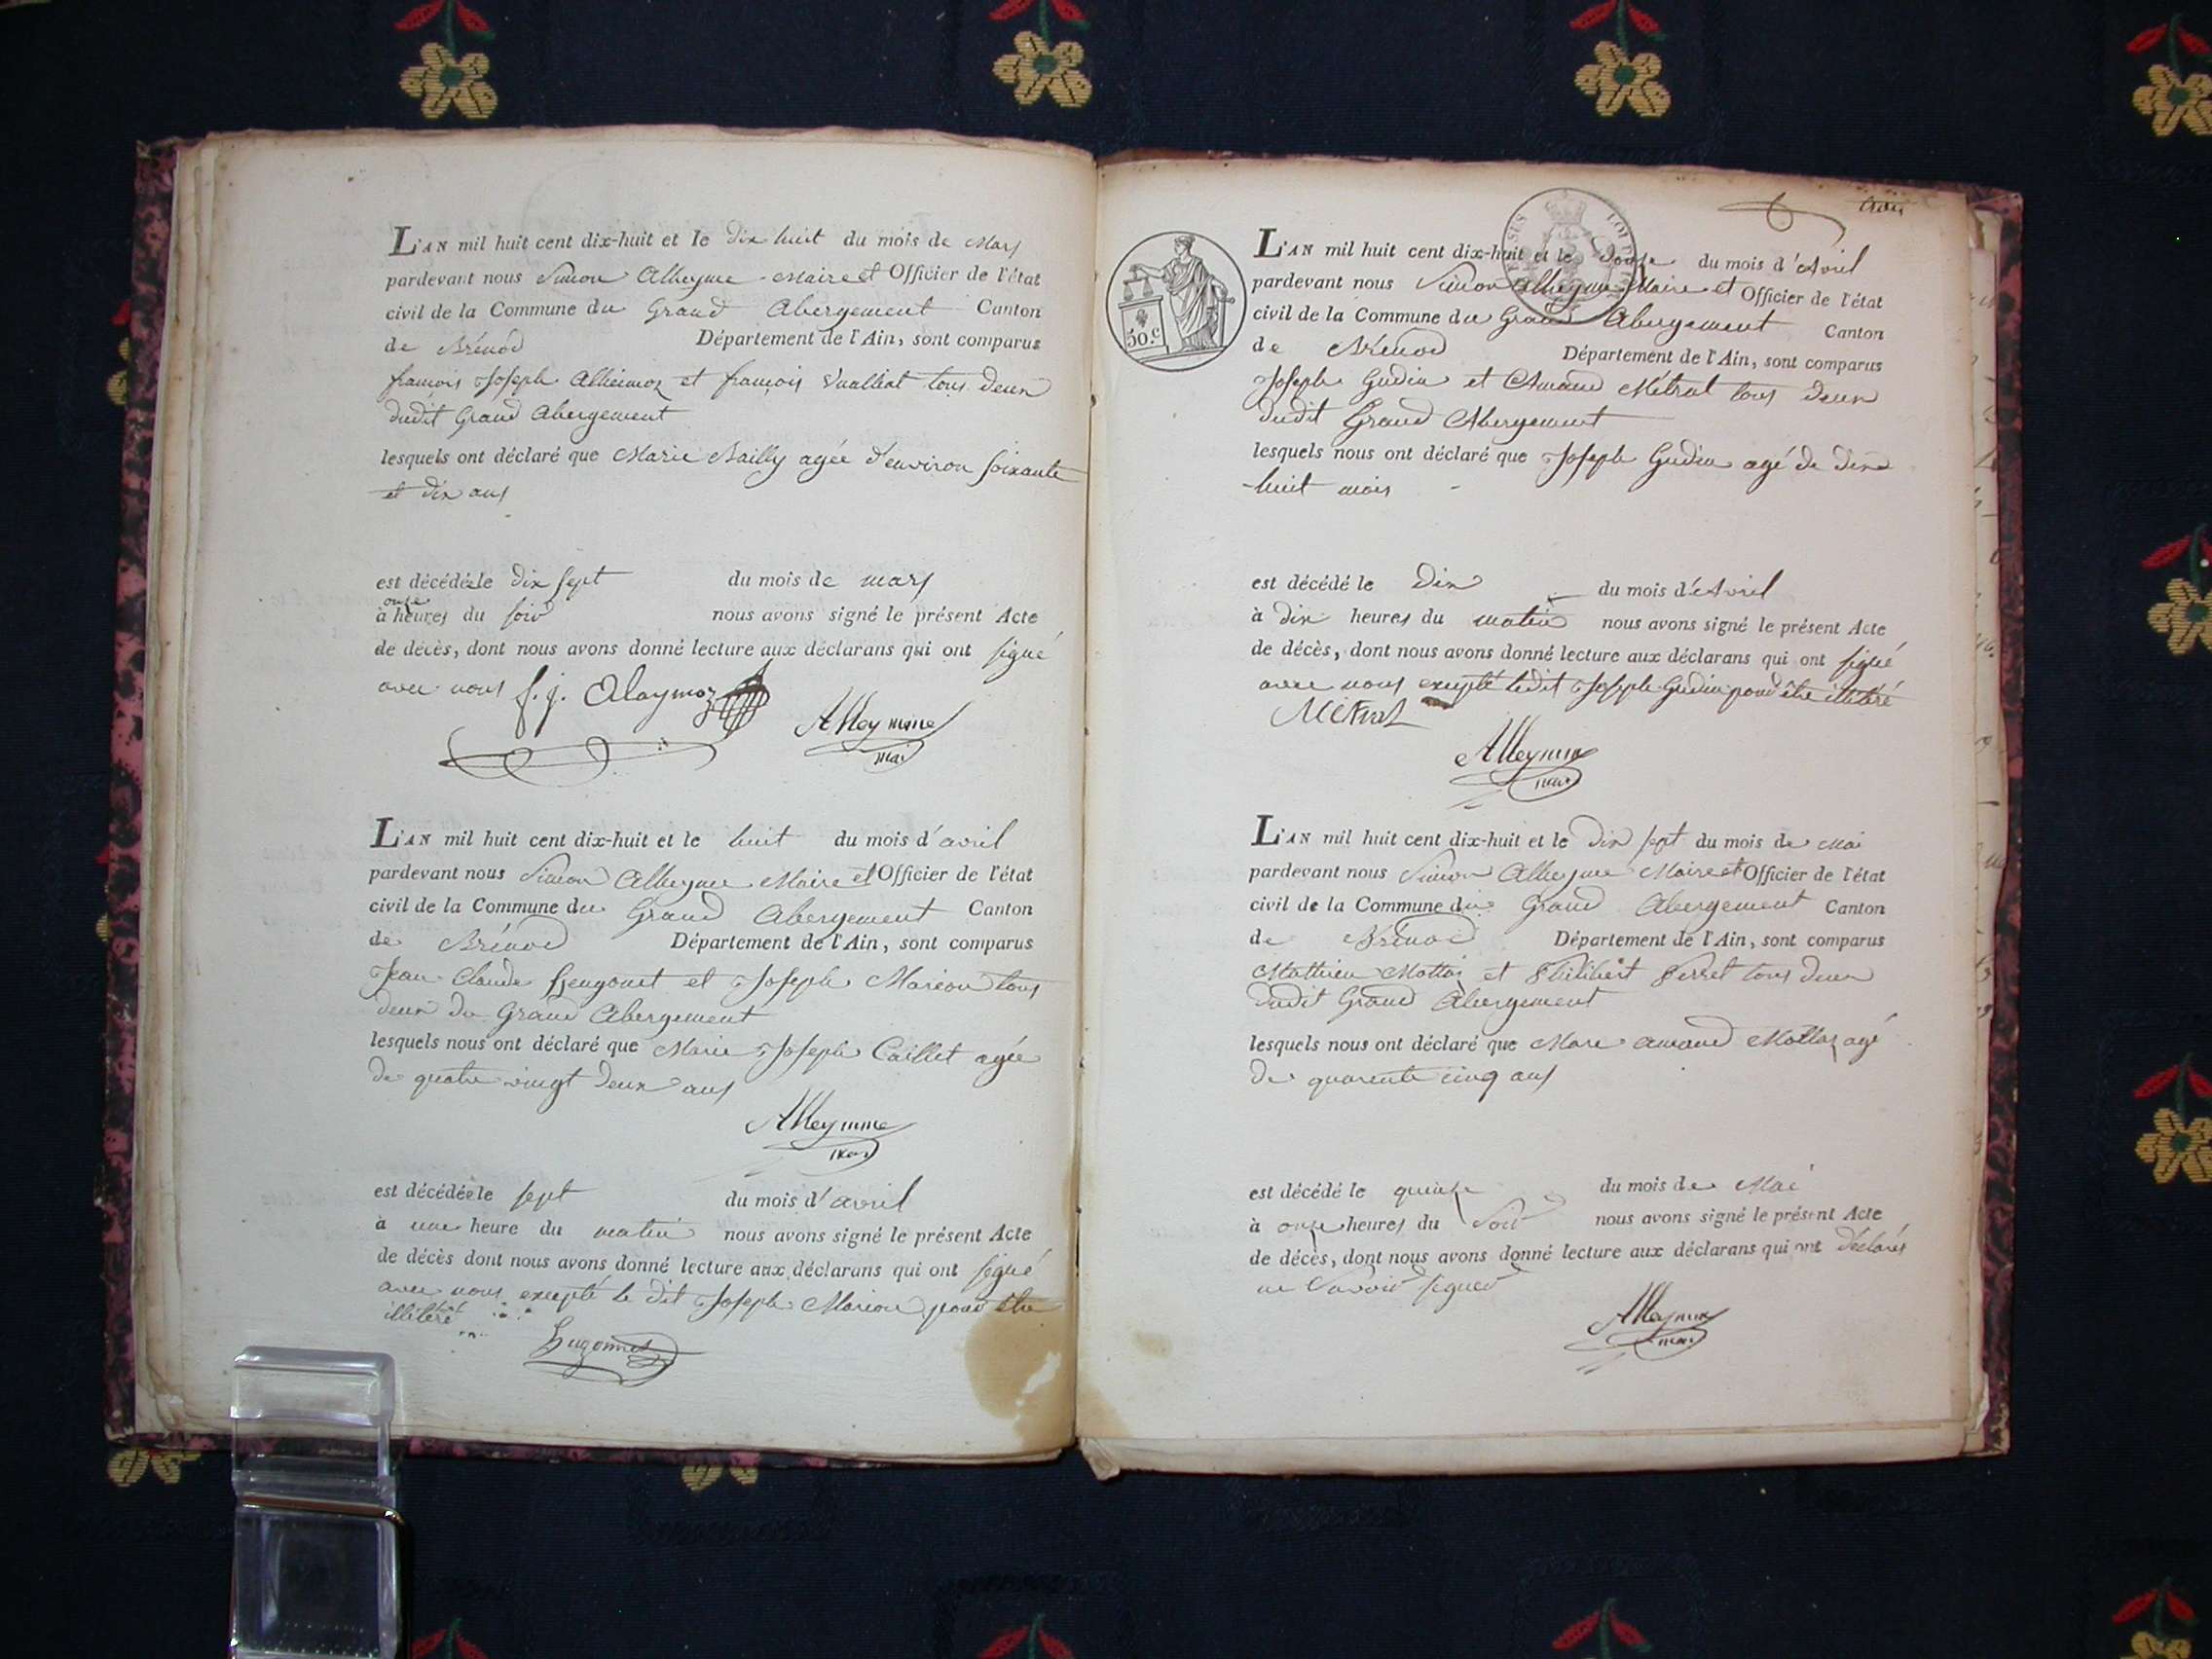 L'AN mil huit cent dix-huit et le dix huit du mois de Mars
pardevant nous Simon Alleyme Maire et Officier de l'état
civil de la Commune du Grand Abergement Canton
de Brénod Département de l'Ain, sont comparus
françois Joseph Alleimoz et françois Vualliat tous deux
dudit Grand Abergement
lesquels ont déclaré que Marie Bailly agée d'environ soixante
et dix ans
est décédée le dix sept du mois de mars
onze
à heures du soir nous avons signé le présent Acte
de décès, dont nous avons donné lecture aux déclarans qui ont signé
avec nous f. j. Alaymoz
Alleymme
mai
L'AN mil huit cent dix-huit et le huit du mois d'avril
pardevant nous Simon Alleyme Maire et Officier de l'état
civil de la Commune du Grand Abergement Canton
de Brénod Département de l'Ain, sont comparus
Jean Claude hugonet et Joseph Marion tous
deux du Grand Abergement
lesquels nous ont déclaré que Marie Joseph Caillet agée
de quatre vingt deux ans
Alleymme
est décédée le sept du mois d'avril
à une heure du matin nous avons signé le présent Acte
de décès dont nous avons donné lecture aux déclarans qui ont signé
avec nous excepté le dit Joseph Marion pour être
illitéré
hugonnet
50.c
L'AN mil huit cent dix-huit et le douze du mois d'Avril
pardevant nous Simon Alleyme Maire et Officier de l'état
civil de la Commune du Grand Abergement Canton
de Brénod Département de l'Ain, sont comparus
Joseph Gudin et Amand Métral tous deux
dudit Grand Abergement
lesquels nous ont déclaré que Joseph Gudin agé de dix
-huit mois
est décédé le dix du mois d'Avril
à dix heures du matin nous avons signé le présent Acte
de décès, dont nous avons donné lecture aux déclarans qui ont signé
avec nous excepté ledit Joseph Gudin pour être illitéré
Métral
Alleymme
L'AN mil huit cent dix-huit et le dix sept du mois de Mai
pardevant nous Simon Alleyme Maire et Officier de l'état
civil de la Commune du Grand Abergement Canton
de Brénod Département de l'Ain, sont comparus
Mathieu Mottaz et Philibert Perret tous deux
dudit Grand Abergement
lesquels nous ont déclaré que Marc amand Mottaz agé
de quarente cinq ans
est décédé le quinze du mois de Mai
à onze heures du soir nous avons signé le présent Acte
de décès, dont nous avons donné lecture aux déclarans qui ont déclarés
ne savoir signer
Alleymme